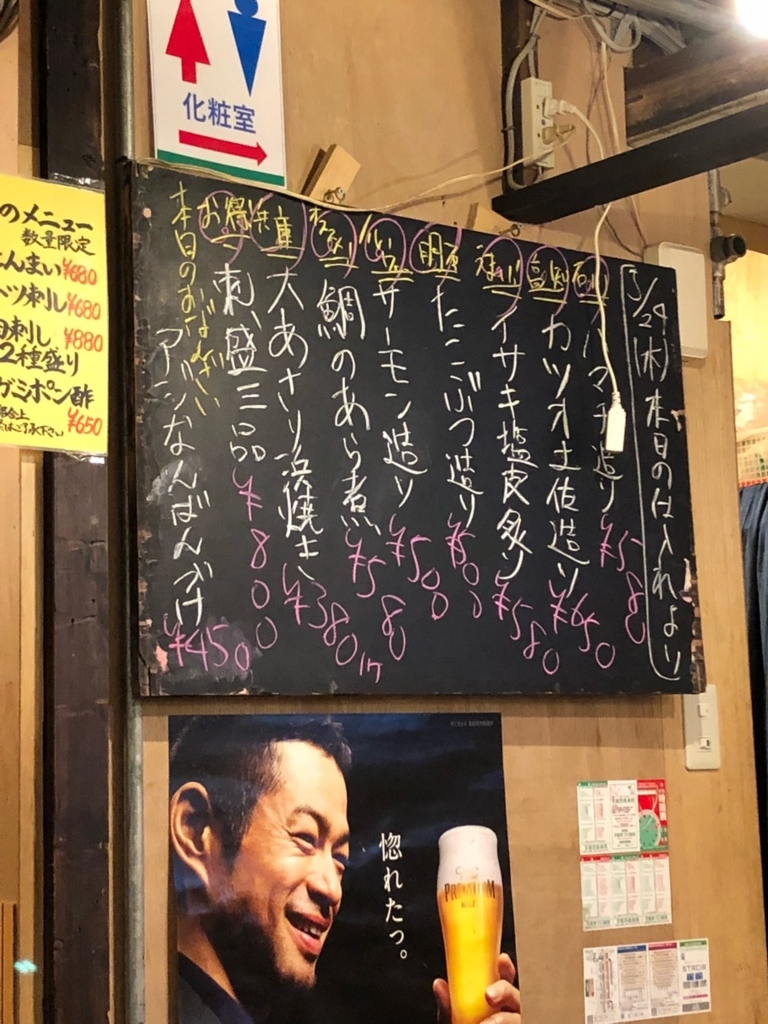 化粧室
のメニュー
数量限定
¥680
ツ刺し ¥680
刺し ¥880
2種盛り
ガミポン酢
はご了承下さい ¥650
5/29(木) 本日の仕入れより
石川 ハマチ造り ¥580
高知 カツオ土佐造り ¥650
イサキ塩皮炙り ¥580
明石 たこぶつ造り ¥500
サーモン造り ¥580
鯛のあら煮 ¥580
兵庫 大あさり浜焼き ¥380 1ケ
お得 刺し盛三品 ¥800
本日のおばんざい
アジなんばんづけ ¥450
惚れたっ。
PREMIUM